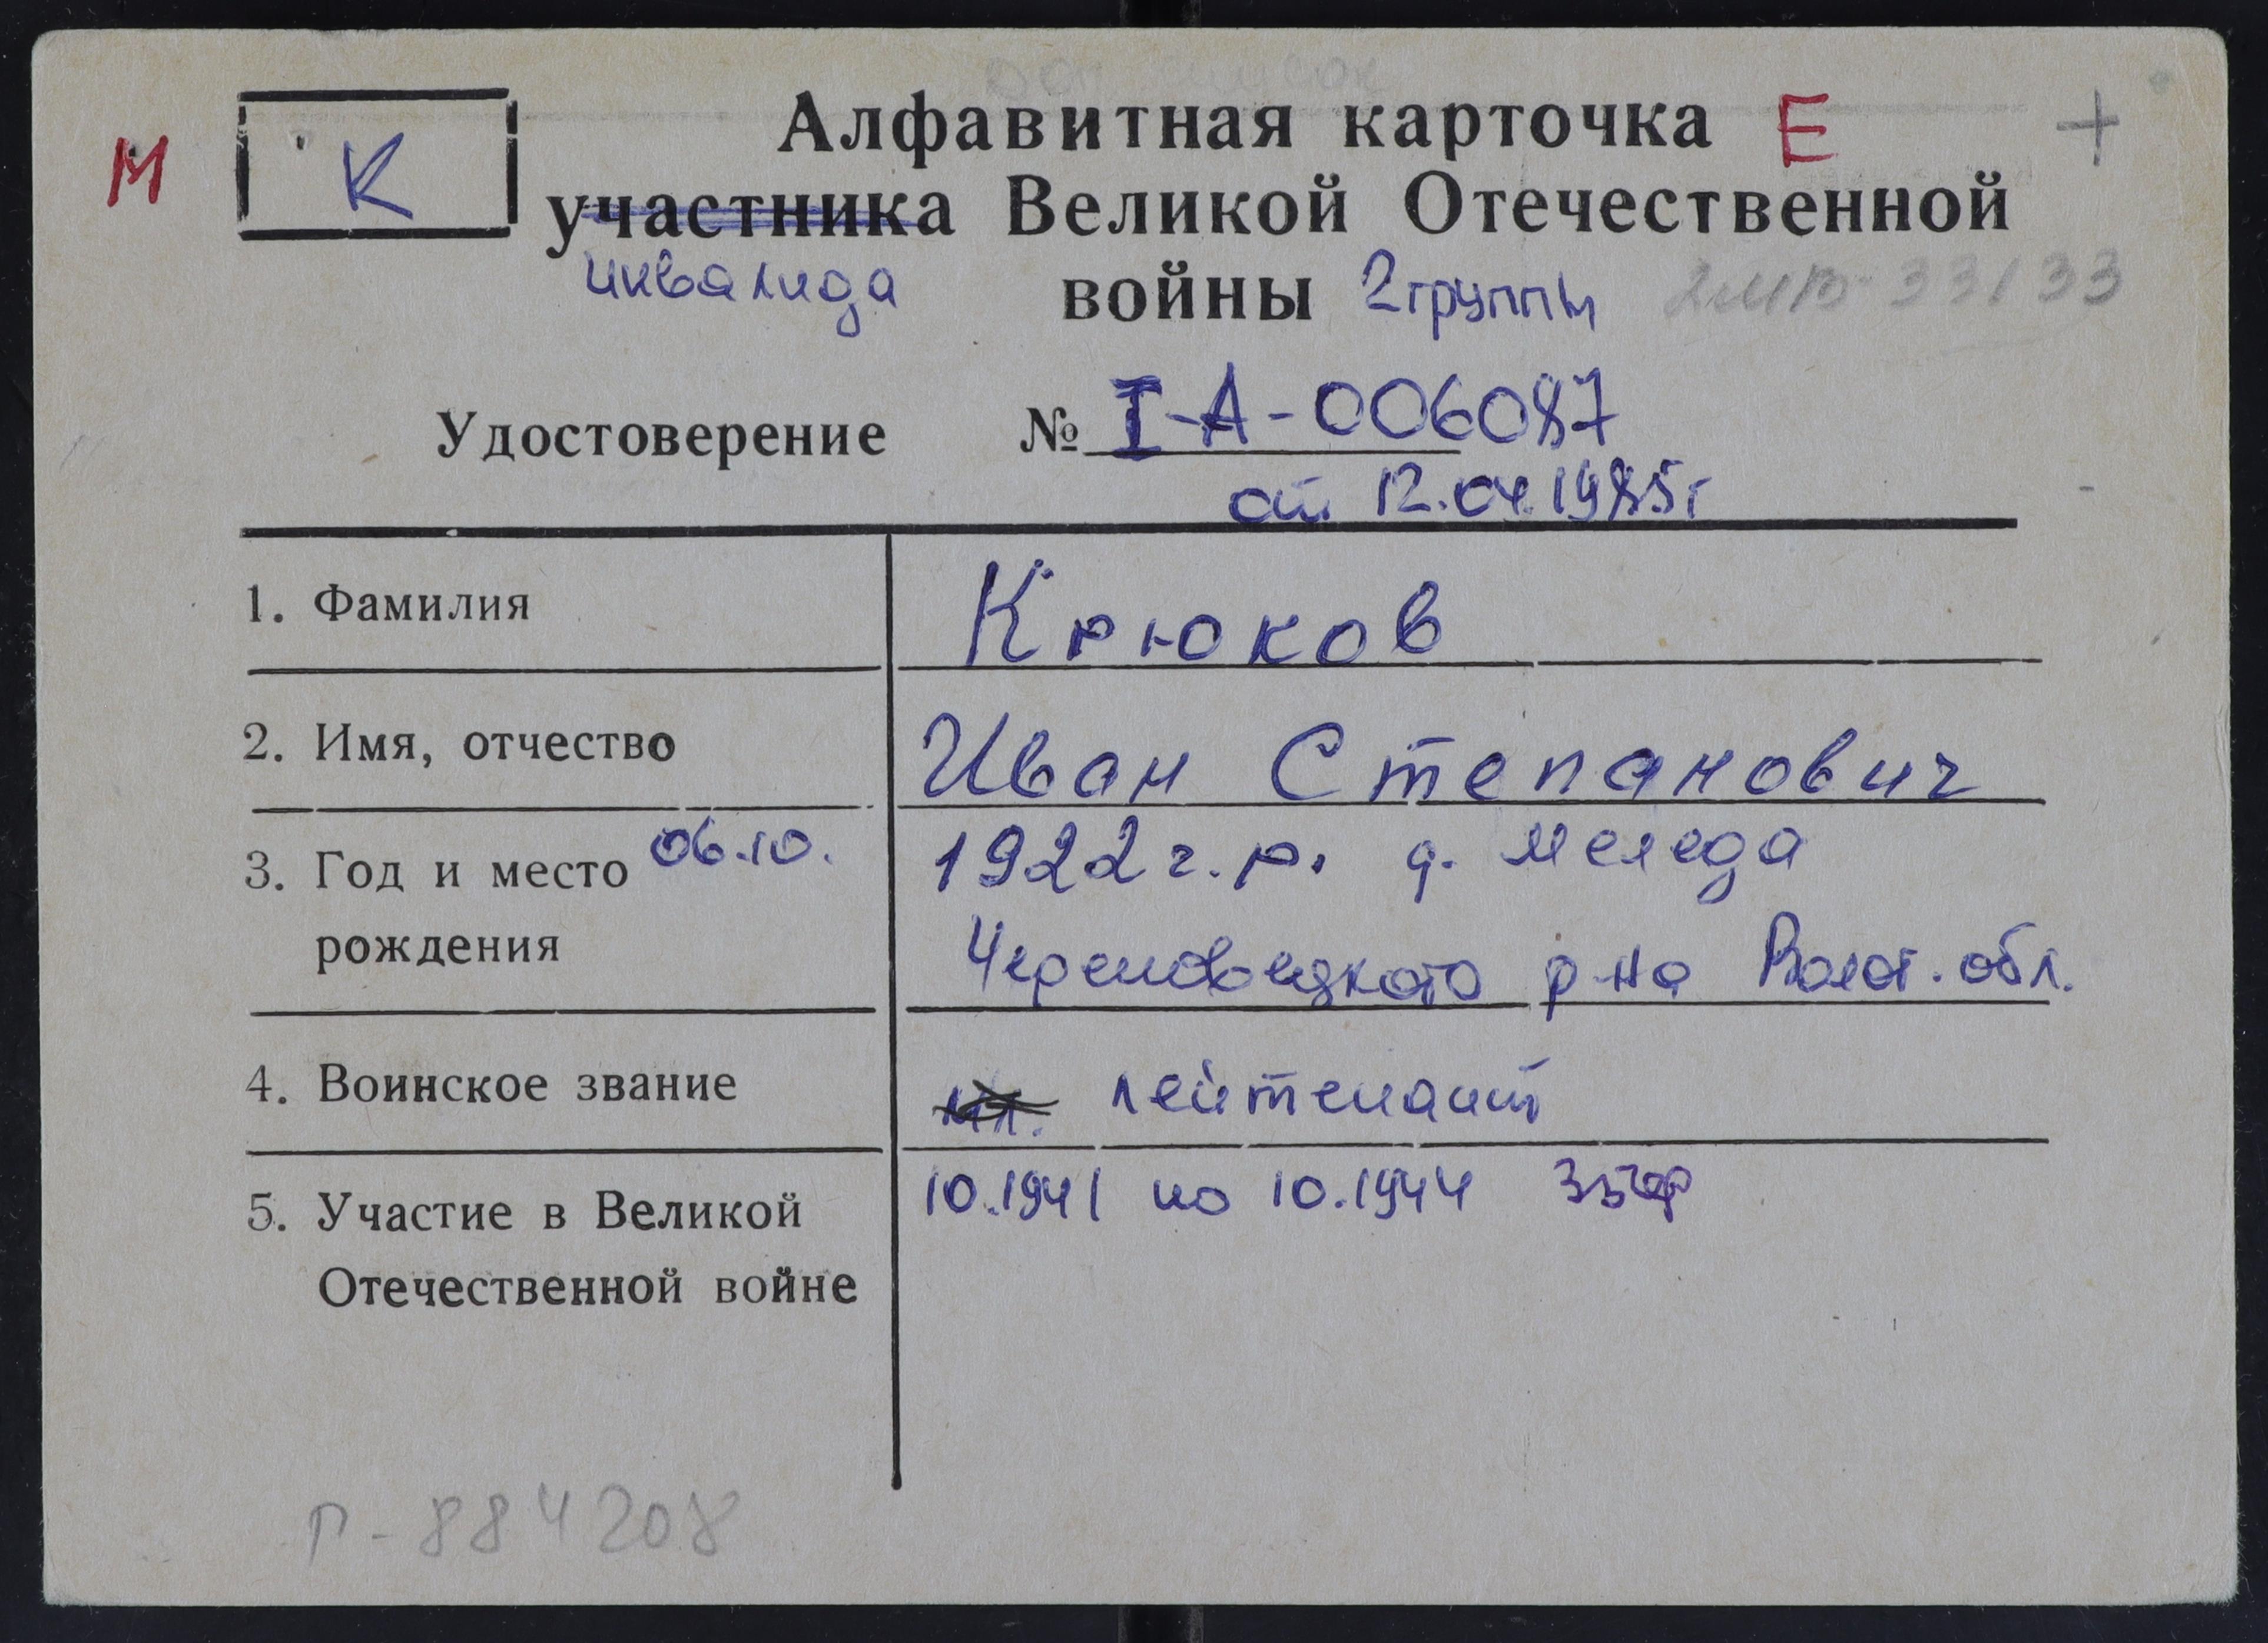 М К Алфавитная карточка Е +
участника Великой Отечественной
инвалида войны 2 группы 33133
Удостоверение № I-А-006087
от 12.04.1985г
1. Фамилия Крюков
2. Имя, отчество Иван Степанович
3. Год и место 06.10. 1922 г.р. д. Меледа
рождения Череповецкого р-на Волог. обл.
4. Воинское звание мл. лейтенант
5. Участие в Великой 10.1941 по 10.1944
Отечественной войне
П-884208